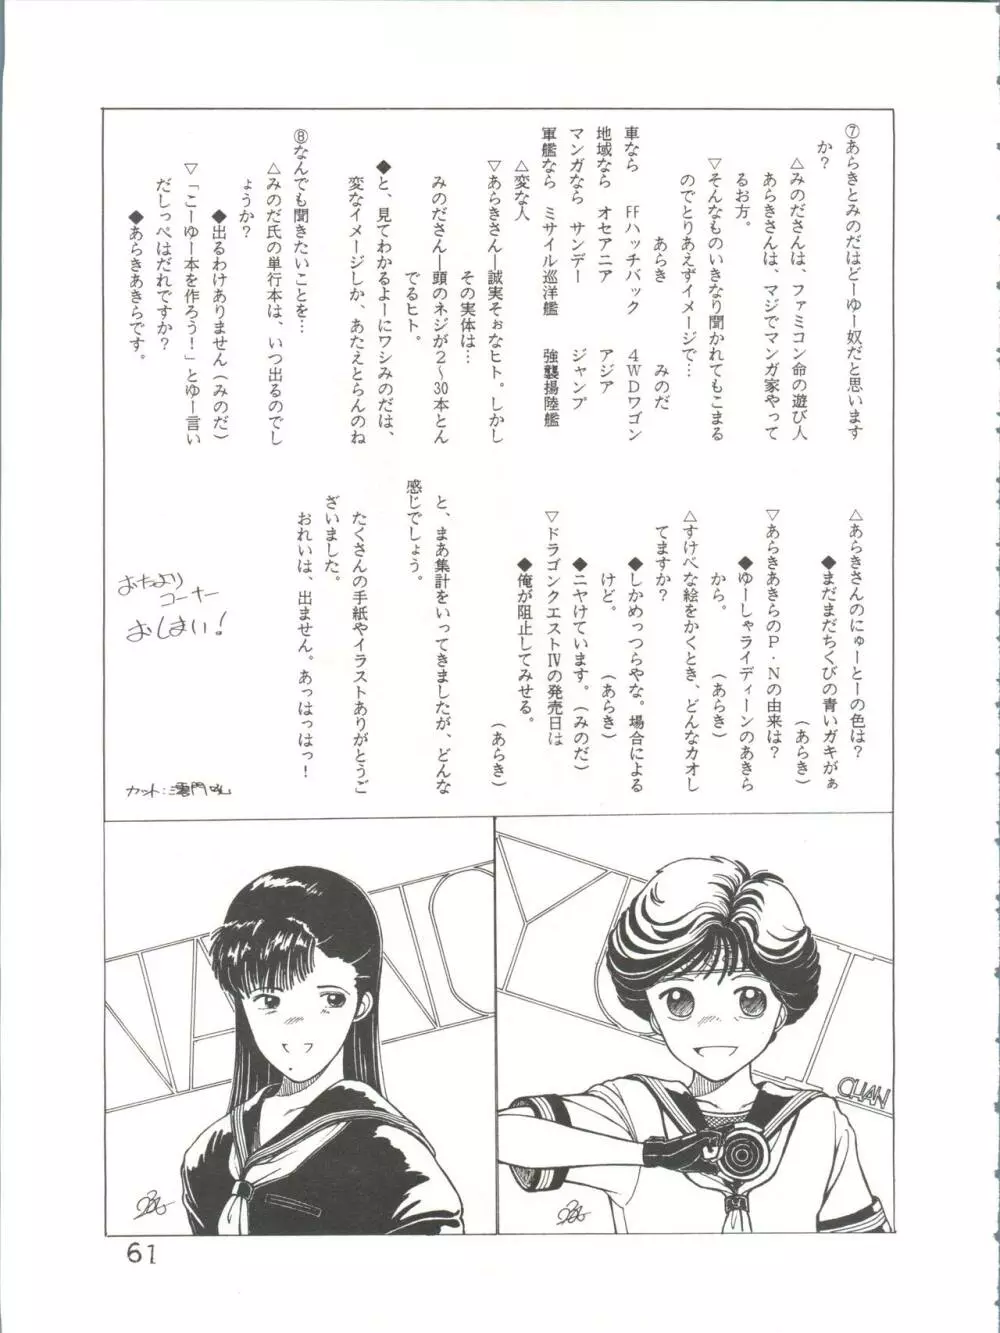 ⑦あらきとみのだはどーゆー奴だと思います
か？
△みのださんは、ファミコン命の遊び人
あらきさんは、マジでマンガ家やって
るお方。
▽そんなものいきなり聞かれてもこまる
のでとりあえずイメージで…
あらき　みのだ
車なら　FFハッチバック　4WDワゴン
地域なら　オセアニア　アジア
マンガなら　サンデー　ジャンプ
軍艦なら　ミサイル巡洋艦　強襲揚陸艦
△変な人
▽あらきさん―誠実そぉなヒト。しかし
その実体は…
みのださん―頭のネジが2～30本とん
でるヒト。
◆と、見てわかるよーにワシみのだは、
変なイメージしか、あたえとらんのね
⑧なんでも聞きたいことを…
△みのだ氏の単行本は、いつ出るのでし
ょうか？
◆出るわけありません（みのだ）
▽「こーゆー本を作ろう！」とゆー言い
だしっぺはだれですか？
◆あらきあきらです。
△あらきさんのにゅーとーの色は？
◆まだまだちくびの青いガキがぁ
（あらき）
▽あらきあきらのP・Nの由来は？
◆ゆーしゃライディーンのあきら
から。　（あらき）
△すけべな絵をかくとき、どんなカオし
てますか？
◆しかめっつらやな。場合による
けど。　（あらき）
◆ニヤけています。（みのだ）
▽ドラゴンクエストⅣの発売日は
◆俺が阻止してみせる。
（あらき）
と、まあ集計をいってきましたが、どんな
感じでしょう。
たくさんの手紙やイラストありがとうご
ざいました。
おれいは、出ません。あっはっはっ！
おたより
コーナー
おしまい！
カット：
YANU
YA
CHAN
61